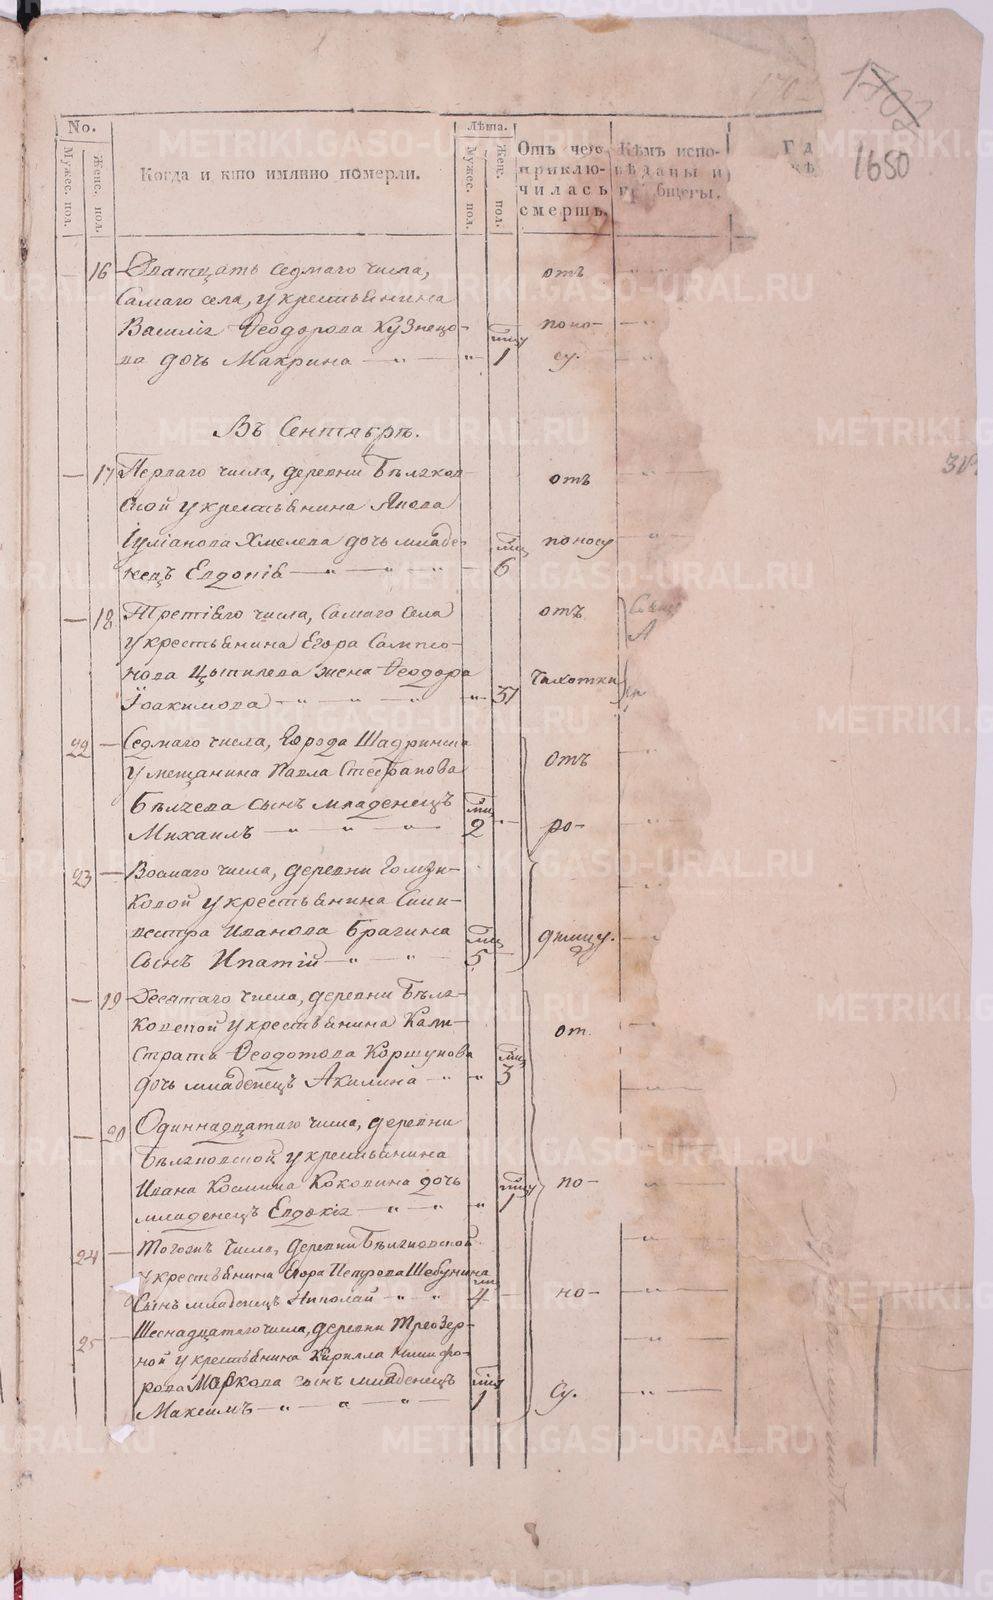 1702
1680
No.
Мужес. пол.
Женс. пол.
Когда и кто имянно померли.
Лѣта.
Мужес. пол.
Женс. пол.
Отъ чего приклю-
чилась
смерть.
Кѣмъ испо-
вѣданы и
бщены.
16 Дватцать седмаго числа,
Самаго села, у крестьянина
Василія Ѳеодорова Кузнецо-
ва дочь Макрина 1
отъ
поно-
су.
Въ Сентябрѣ.
17 Перваго числа, деревни Бѣляков-
ской у крестьянина Якова
Іуліанова Хмелева дочь младе-
нецъ Евдокія 6
отъ
поносу
18 Третіяго числа, Самаго Села
у крестьянина Егора Сампсо-
нова Цыпилева жена Ѳеодора
Іоакимова 37
отъ
чахотки
22 Седмаго числа, Города Шадринска
у мещанина Павла Стефанова
Бѣлчева сынъ младенецъ
Михаилъ 2
отъ
ро-
23 Восмаго числа, деревни Голяди-
ковой у крестьянина Сили-
вестра Иванова Брагина
сынъ Ипатій 5
димцу.
19 Десятаго числа, деревни Бѣля-
ковской у крестьянина Кали-
страта Ѳеодотова Коршунова
дочь младенецъ Акилина 3
от
20 Одиннадцатаго числа, деревни
Бѣляковской у крестьянина
Ивана Космина Коковина дочь
младенецъ Евдокія 1
по-
24 Тогожъ числа, деревни Бѣляковской
у крестьянина Егора Петрова Шебунина
сынъ младенецъ Николай 4
но-
25 Шеснадцатаго числа, деревни Трёозер-
ной у крестьянина Кирилла Никифо-
рова Маркова сынъ младенецъ
Максимъ 1
су.